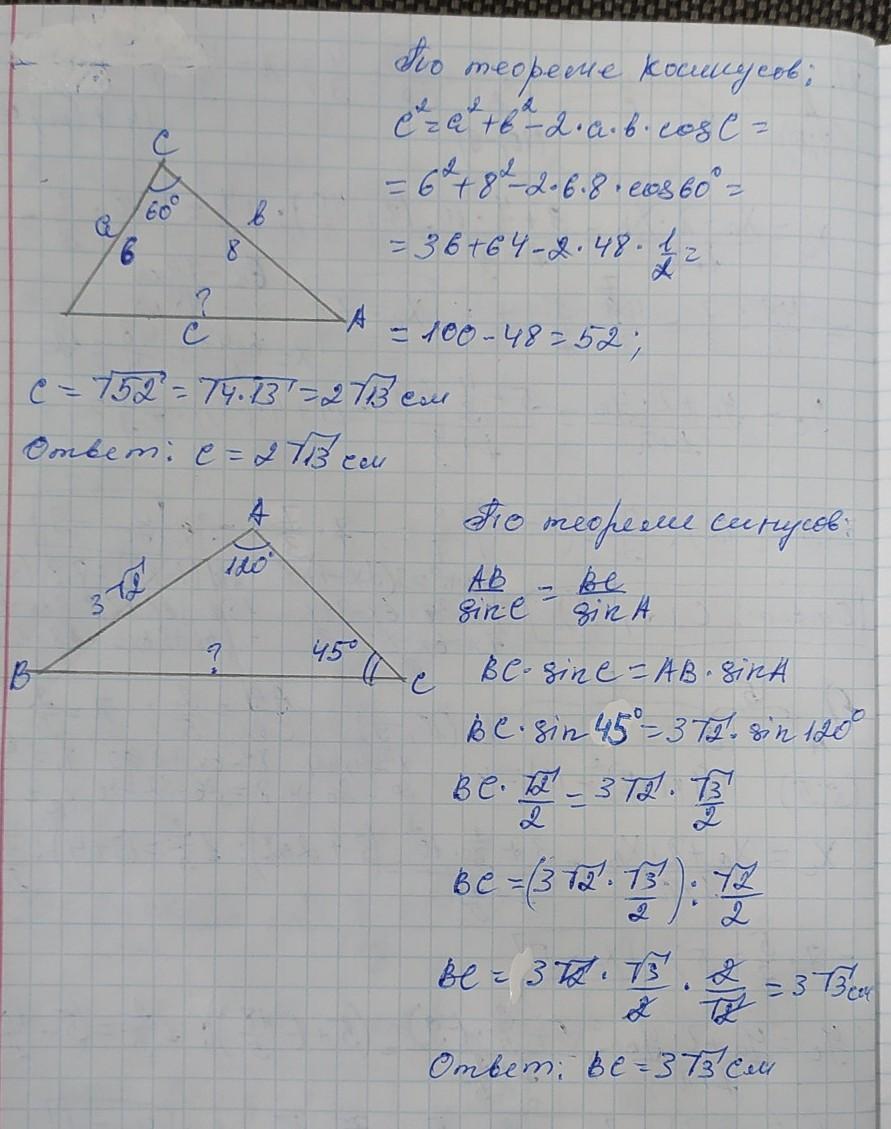 По теореме косинусов:
c²=a²+b²-2·a·b·cosC=
=6²+8²-2·6·8·cos60°=
=36+64-2·48·1/2=
=100-48=52;
C
60°
a
6
b
8
?
c
A
c=√52=√4·13=2√13 см
Ответ: c=2√13 см
A
120°
3√2
45°
?
B
C
По теореме синусов:
AB/sinC=BC/sinA
BC·sinC=AB·sinA
BC·sin45°=3√2·sin120°
BC·√2/2=3√2·√3/2
BC=(3√2·√3/2):√2/2
BC=3√2·√3/2·2/√2=3√3см
Ответ: BC=3√3 см